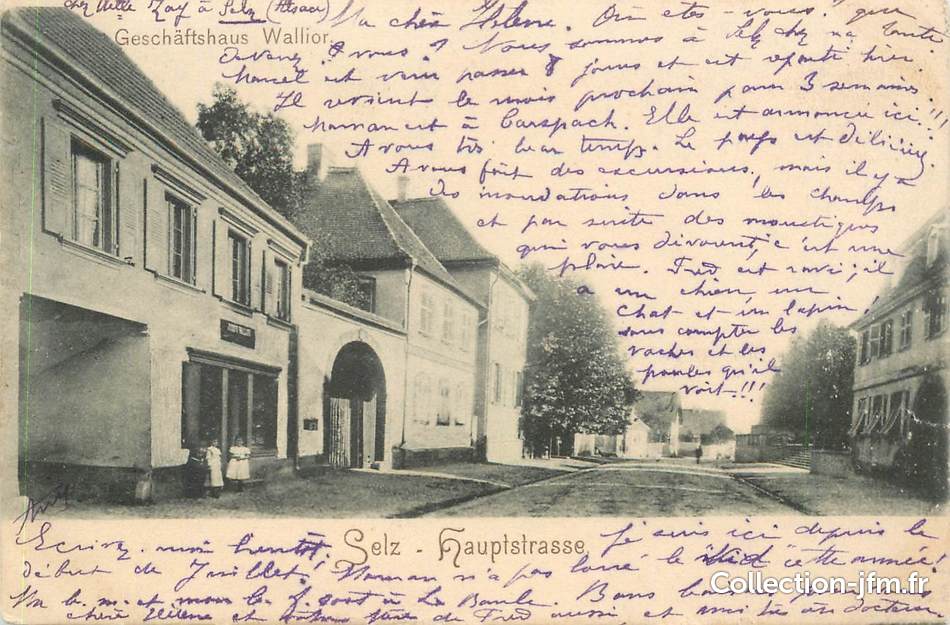 chez Melle Zay à Selz (Alsace)
Geschäftshaus Wallior.
Ma chère Hélène. Où êtes-vous? que
devenez-vous? Nous sommes à Selz chez ma tante
Marcel est venu passer 8 jours et est reparti hier.
Il revient le mois prochain pour 3 semaines!!
Maman est à Carspach. Elle est annoncée ici!
Avons très beau temps. Le pays est délicieux,
Avons fait des excursions, mais il y a
des inondations dans les champs
et par suite des moustiques
qui vous dévorent, c'est une
plaie. Fred est ravi; il
a un chien, un
chat et un lapin,
sans compter les
vaches et les
poules qu'il
voit!!!
Selz - Hauptstrasse
Ecrivez-moi bientôt! Je suis ici depuis le
début de Juillet. Maman n'a pas loué le cette année.
Ma b. m. et mon b. f. sont à La Baule. Bons baisers
chère Hélène et de Fred aussi et
Collection-jfm.fr